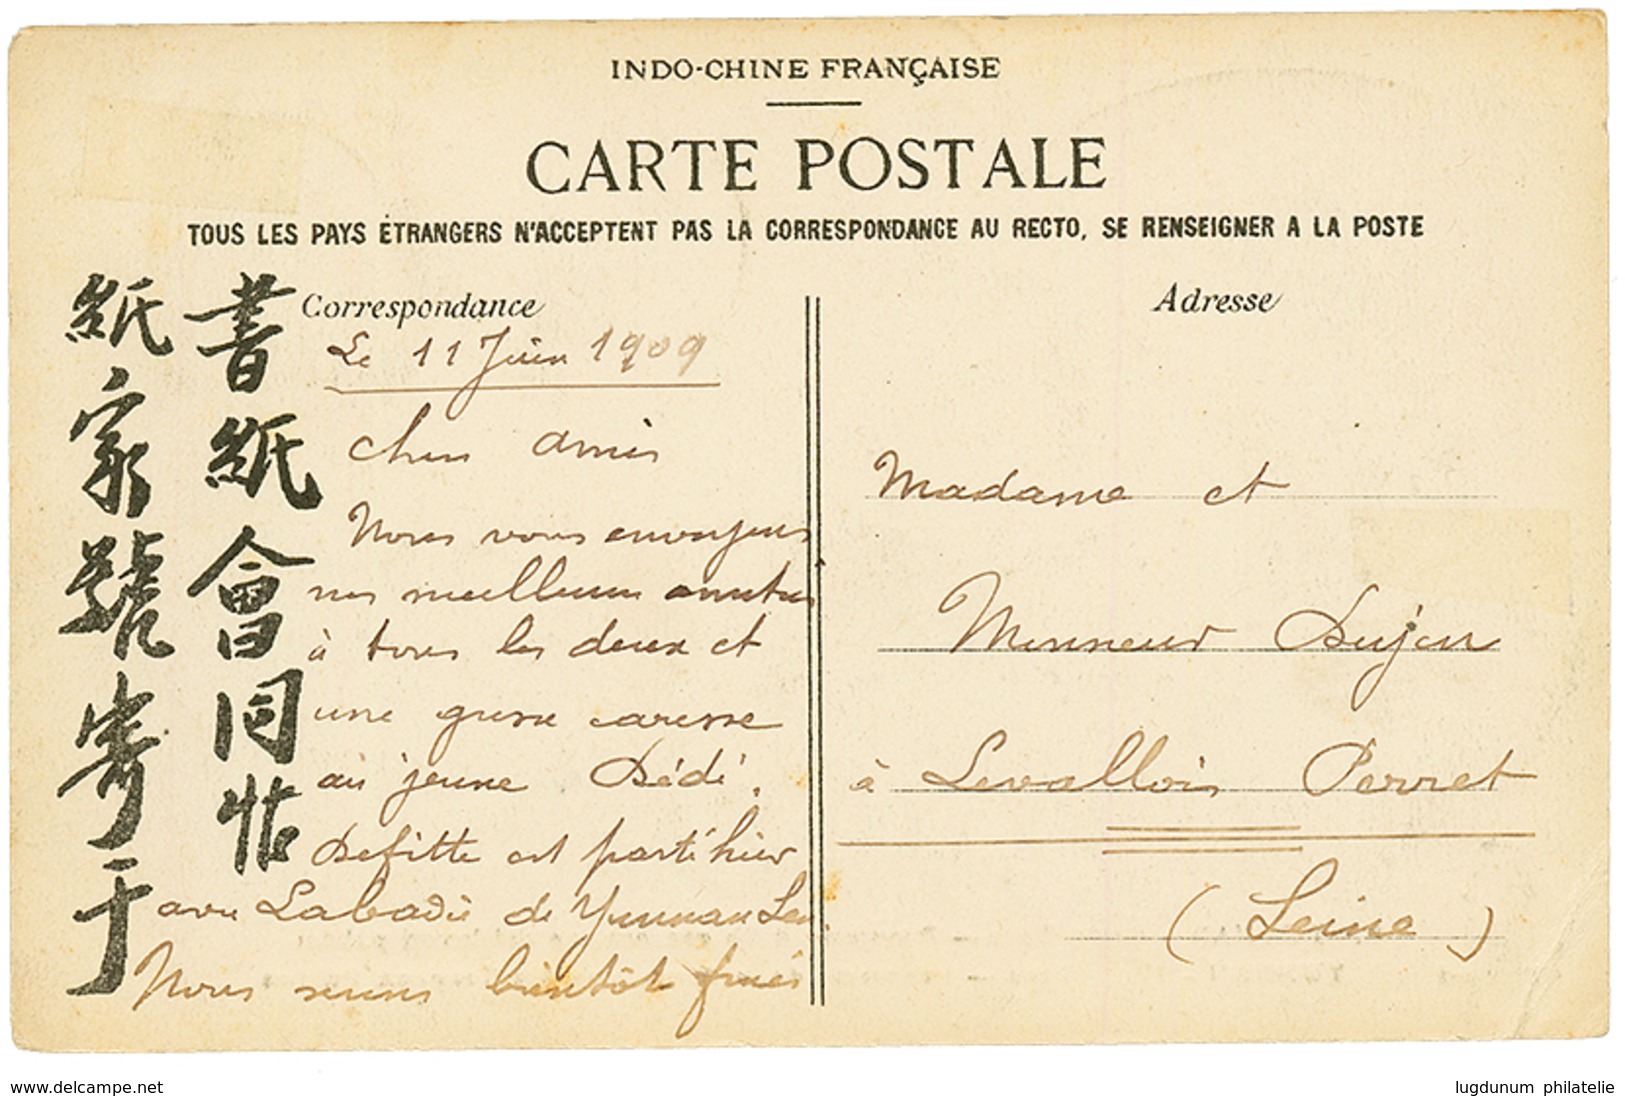 INDO-CHINE FRANÇAISE
CARTE POSTALE
TOUS LES PAYS ÉTRANGERS N'ACCEPTENT PAS LA CORRESPONDANCE AU RECTO, SE RENSEIGNER A LA POSTE
書紙會同帖
紙家號寄于
Correspondance
Le 11 Juin 1909
Chers amis
Nous vous envoyons
nos meilleures amitiés
à tous les deux et
une grosse caresse
au jeune Dédé.
Defitte est parti hier
avec Labadie de Yunnan Sen.
Nous serons bientôt fixés
Adresse
Madame et
Monsieur Dujon
à Levallois Perret
(Seine)
www.delcampe.net
lugdunum philatelie